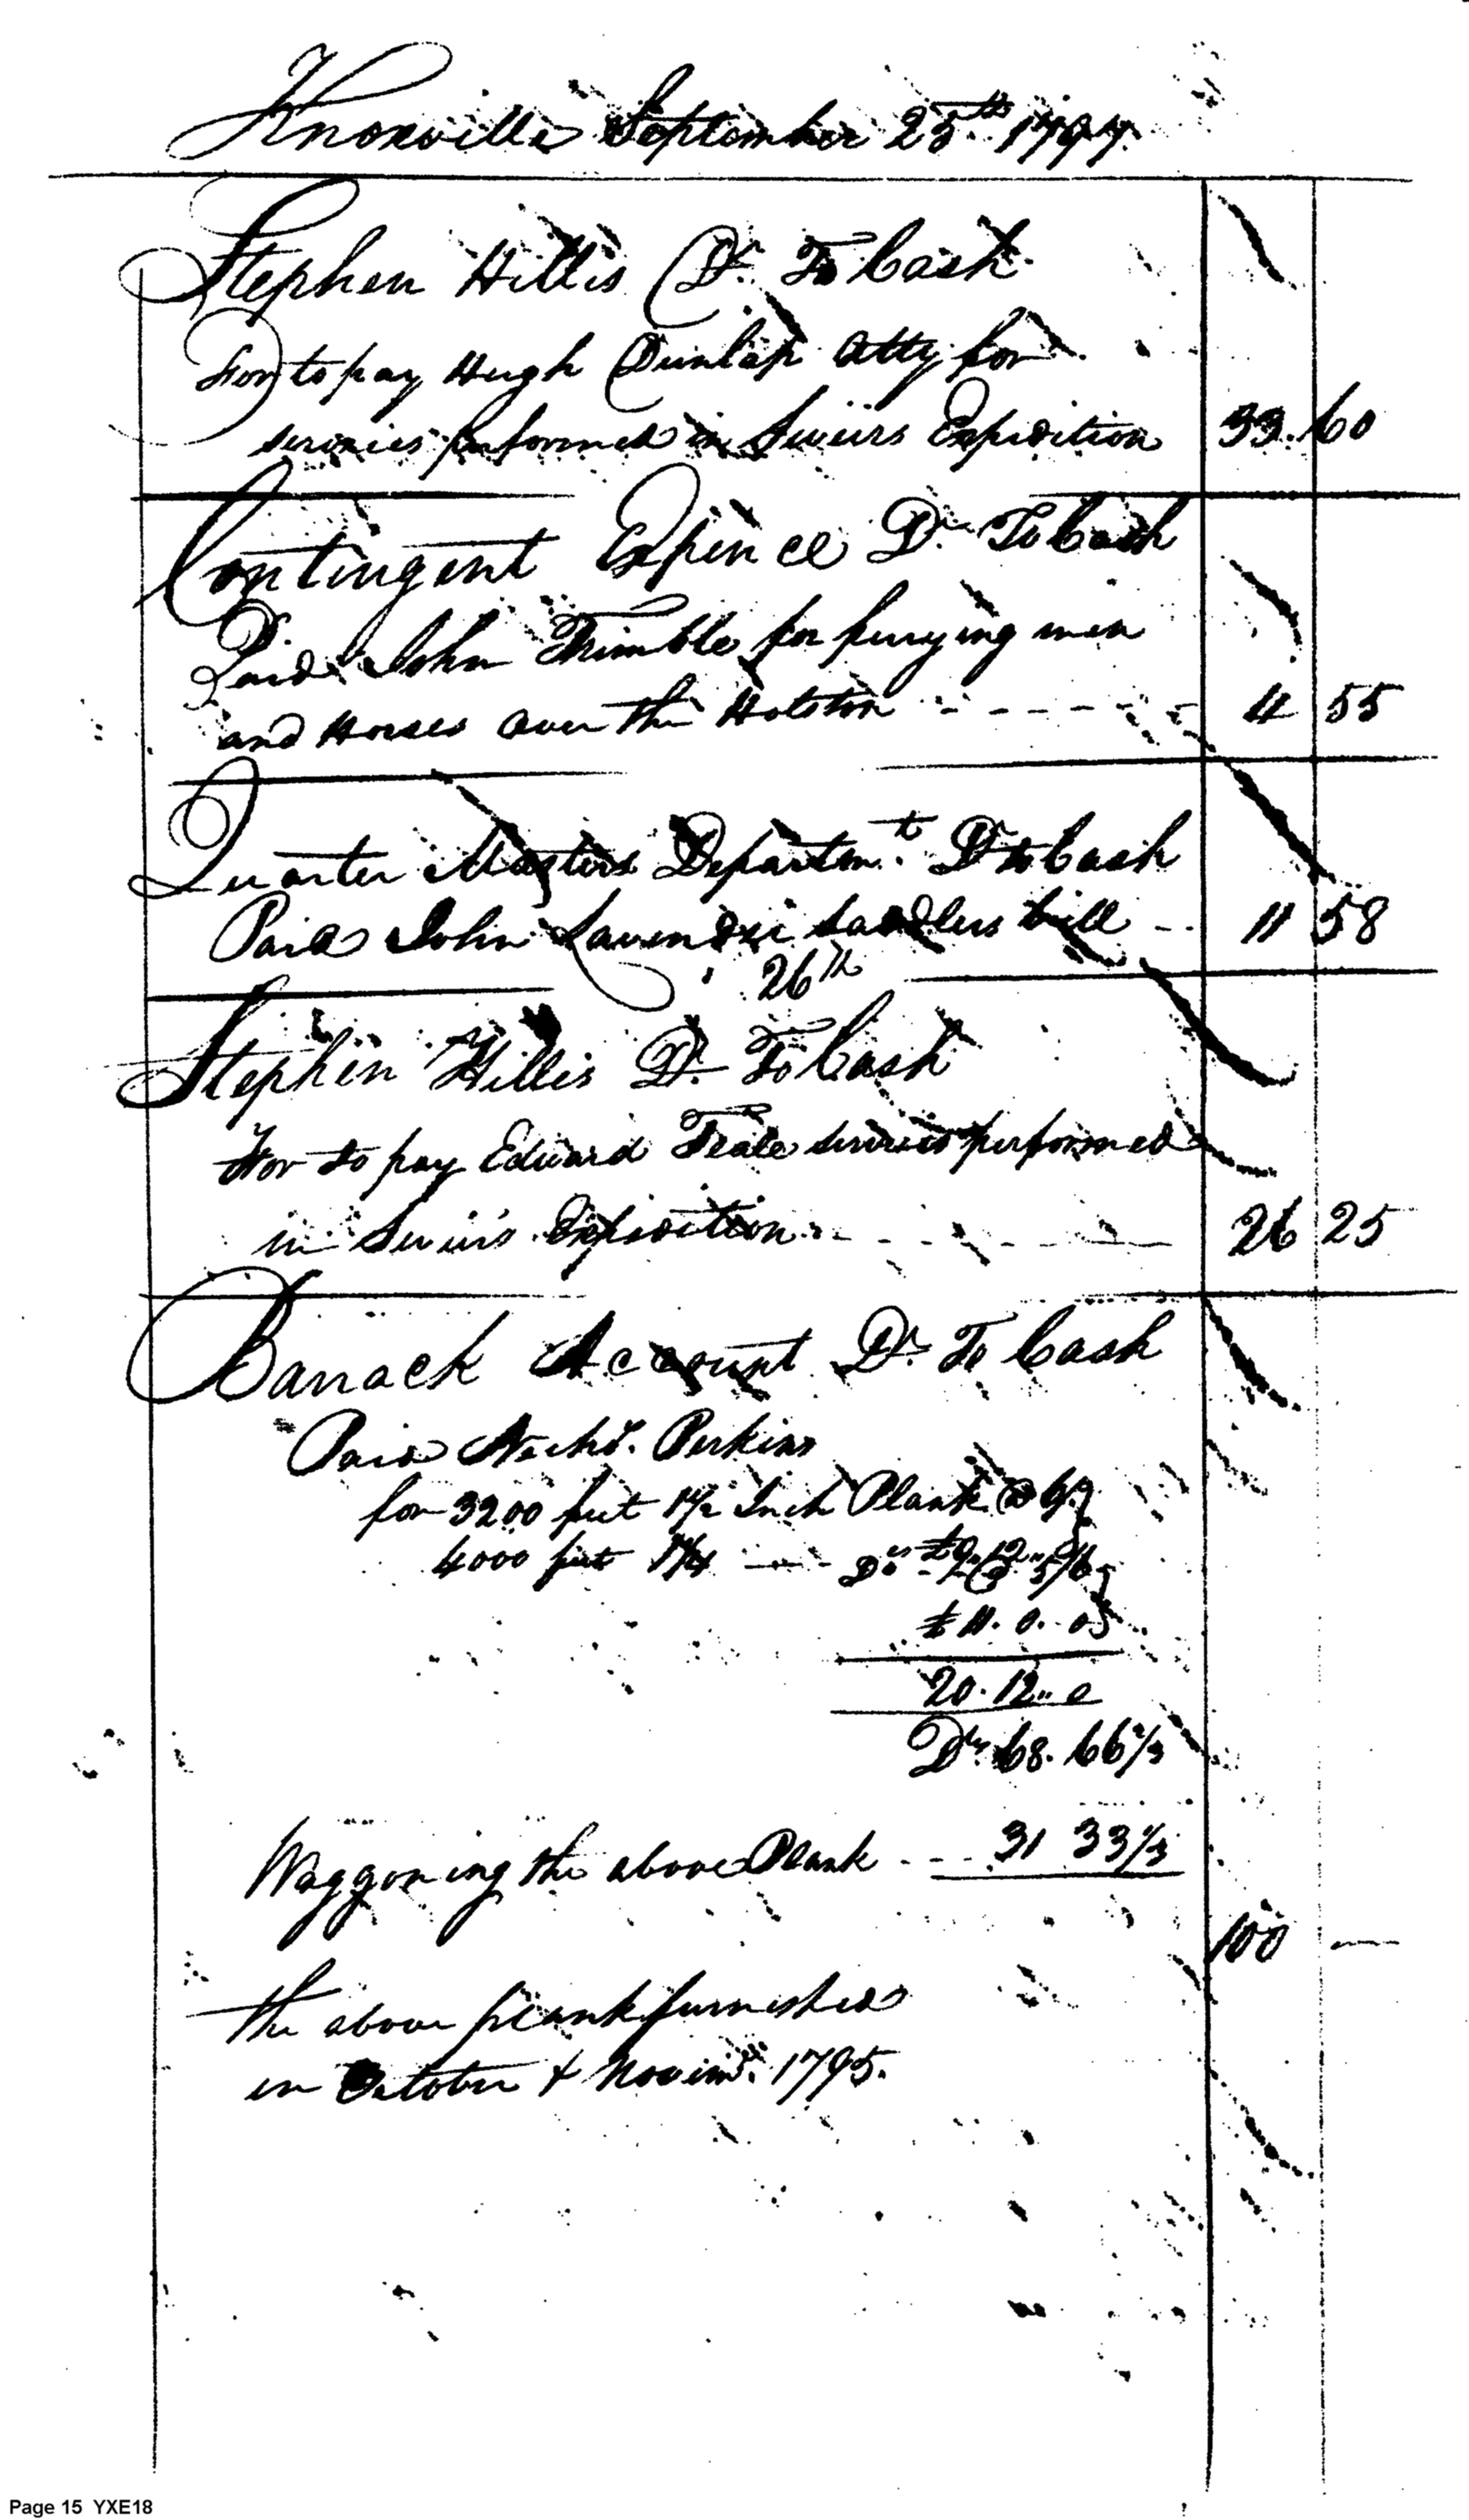 Knoxville September 25th 1797.
Stephen Hillis Dr. To Cash
For to pay Hugh Dunlap Atty for
services performed in Seviers Expidition 33. 60
Contingent Expence Dr To Cash
Paid John Trimble for ferrying men
and Horses over the Holston - - - - - 11 55
Quarter Masters Departmt. Dr to Cash
Paid John sadlers bill - - 11 58
26th
Stephen Hillis Dr. To Cash
For to pay Edward Teate services performed
in Seviers Expidition - - - - - 26 25
Barrack Account Dr. To Cash
Paid Nichs. Perkins
for 3200 feet 1½ Inch Plank @ 6/
4000 feet 1¼ — Do @ 5/6
£ 11. 0. 0
20. 12 " 0
Drs 68. 66⅔
Waggoning the above Plank - - - 31 33⅓
100 —
the above plank furnished
in October & Novimr. 1795.
Page 15 YXE18